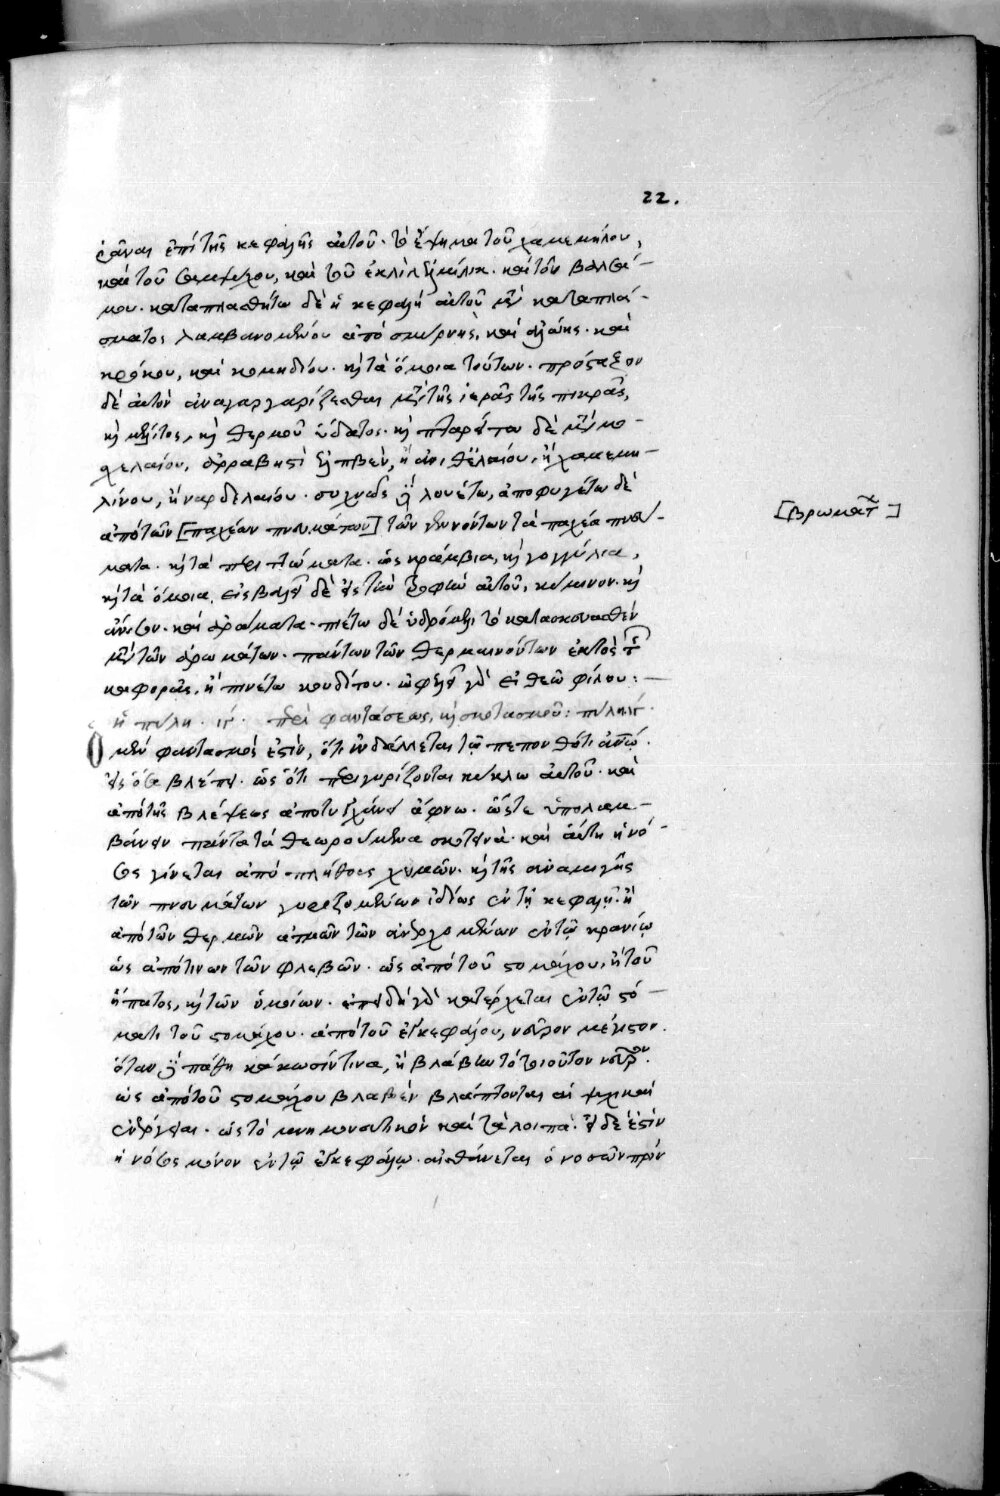 22.
ῥᾶναι ἐπὶ τῆς κεφαλῆς αὐτοῦ. τὸ ἕψημα τοῦ χαμεμήλου,
καὶ τοῦ σαμψύχου, καὶ τοῦ καὶ τοῦ βαλσά-
μου. καταπλασθήτω δὲ ἡ κεφαλὴ αὐτοῦ μετὰ καταπλά-
σματος λαμβανομένου ἀπὸ σμύρνης, καὶ ἀλόης. καὶ
κρόκου, καὶ κομιδίου. καὶ τὰ ὅμοια τούτων. πρόσταξον
δὲ αὐτὸν ἀναγαργαρίζεσθαι μετὰ τῆς ἱερᾶς τῆς πικρᾶς,
καὶ μέλιτος, καὶ θερμοῦ ὕδατος. καὶ πταρέτω δὲ μετὰ μο-
χελαίου, ἢ χαμεμη-
λίνου, ἢ ναρδελαίου. συχνῶς δὲ λουέτω, ἀποφυγέτω δὲ
ἀπὸ τῶν [παχέων πνευμάτων] τῶν γεννόντων τὰ παχέα πνεύ-
[βρωμάτων]
ματα. καὶ τὰ περιττώματα. ὡς κράμβια, καὶ γογγύλια,
καὶ τὰ ὅμοια. εἰσβαλεῖν δὲ εἰς τὴν τροφὴν αὐτοῦ, κύμινον. καὶ
ἄνισον. καὶ ἀρώματα. πιέτω δὲ ὑδρόμελι τὸ κατασκευασθὲν
μετὰ τῶν ἀρωμάτων. πάντων τῶν θερμαινόντων ἐκτὸς τῆς
καφορᾶς, ἢ πινέτω κονδίτου. ὠφελεῖ γὰρ εἰ θεῷ φίλον:—
ἡ πύλη. ιγ. περὶ φαντάσεως, καὶ σκοτασμοῦ: πύλη ιγ.
Ὁ μὲν φαντασμός ἐστιν, ὅτι ἰνδάλλεται τῷ πεπονθότι ἀνθρώπῳ.
εἰς ὅσα βλέπει. ὡς ὅτι περιγυρίζονται κύκλω αὐτοῦ. καὶ
ἀπὸ τῆς βλέψεως ἀποτυγχάνει ἄφνω. ὥστε ὑπολαμ-
βάνειν πάντα τὰ θεωρούμενα σκοτεινά. καὶ αὕτη ἡ νό-
σος γίνεται ἀπὸ πλήθους χυμῶν. καὶ τῆς συναμιγῆς
τῶν πνευμάτων γυριζομένων ἰδίως ἐν τῇ κεφαλῇ. ἢ
ἀπὸ τῶν θερμῶν ἀτμῶν τῶν ἀνερχομένων ἐν τῷ κρανίῳ
ὡς ἀπό τινων τῶν φλεβῶν. ὡς ἀπὸ τοῦ στομάχου, ἢ τοῦ
ἥπατος, καὶ τῶν ὁμοίων. ἐπειδὴ γὰρ κατέρχεται ἐν τῷ στό-
ματι τοῦ στομάχου. ἀπὸ τοῦ ἐγκεφάλου, νεῦρον μέγιστον.
ὅταν δὲ πάθῃ κάκωσίν τινα, ἢ βλάβην τὸ τοιοῦτον νεῦρον.
ὡς ἀπὸ τοῦ στομάχου βλαβὲν βλάπτονται αἱ ψυχικαὶ
ἐνέργειαι. ὡς τὸ μνημονευτικὸν καὶ τὰ λοιπά. εἰ δέ ἐστιν
ἡ νόσος μόνον ἐν τῷ ἐγκεφάλῳ. αἰσθάνεται ὁ νοσῶν πρὶν